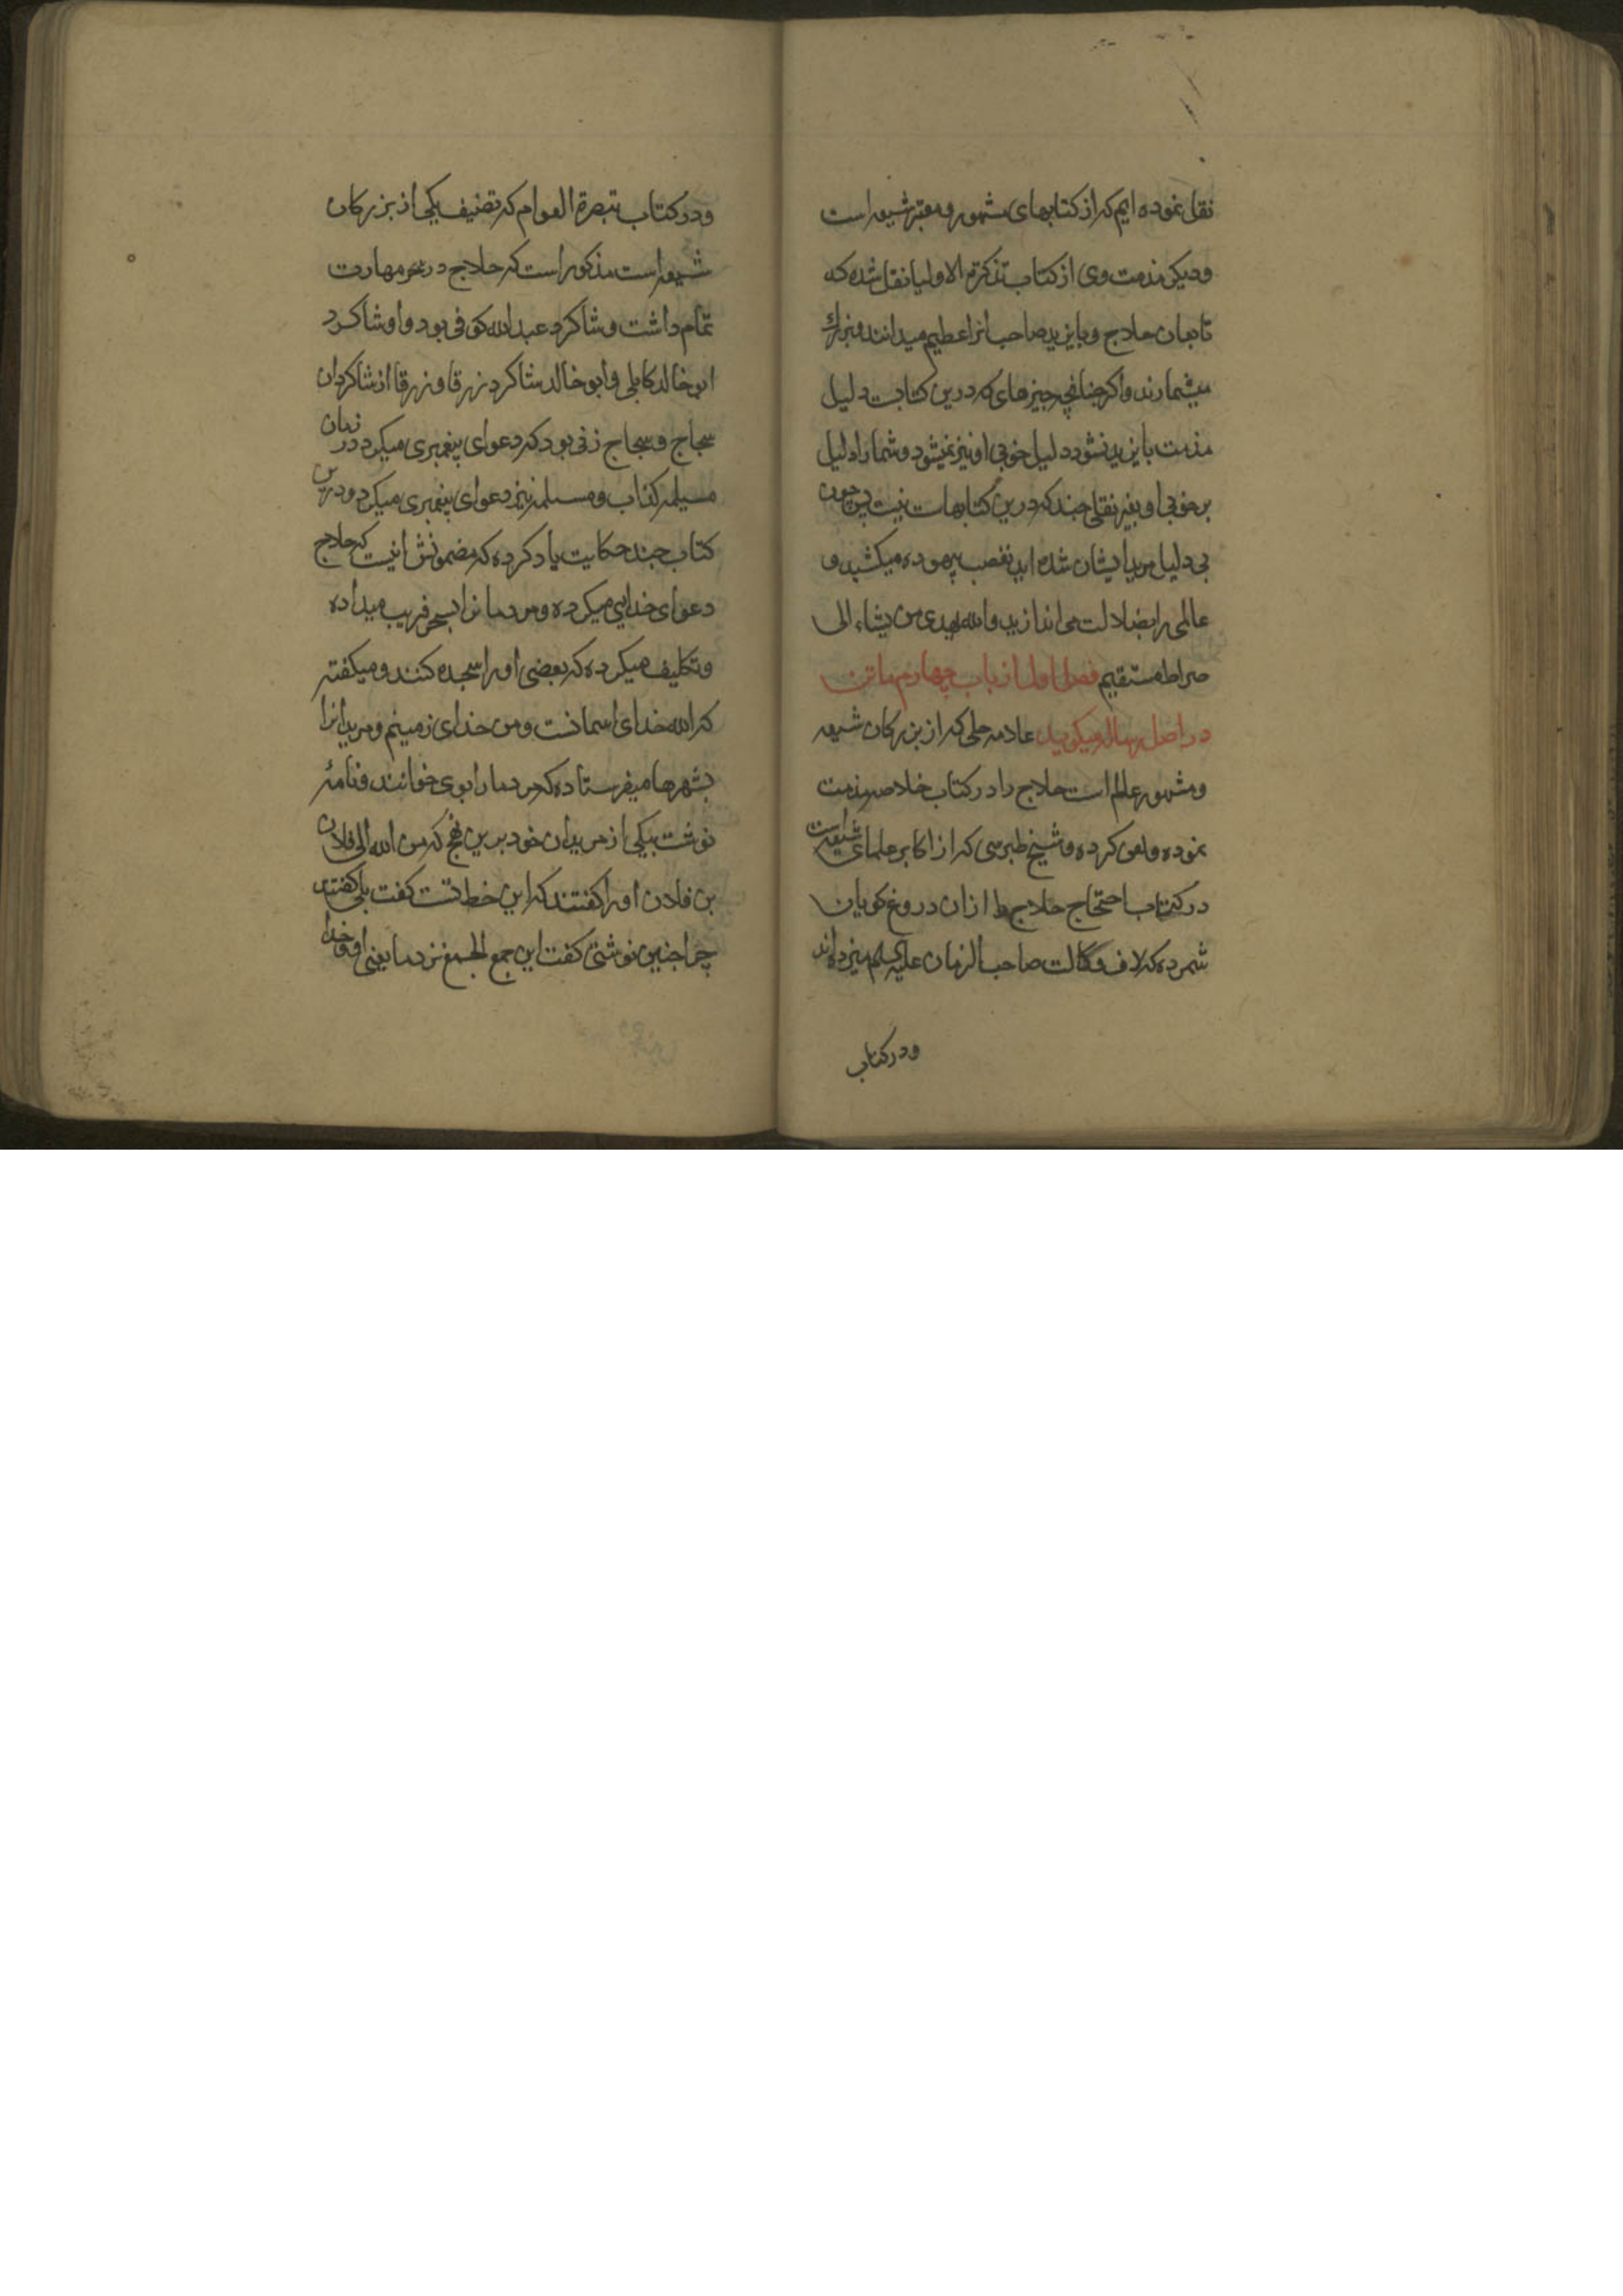 نقل نموده ایم که از کتابهای مشهور و معتبر شیعه است
ودیکر مذمت وی از کتاب تذکرة الاولیا نقل شده که
تابعان حلاج و بایزید صاحب انرا عظیم میدانند و بزرك
میشمارند و اکر چنانچه چیزهای که درین کتابست دلیل
مذمت بایزید نشود دلیل خوبی او نیز نمیشود و شما را دلیل
بر خوبی او بغیر نقلی چند که درین کتابهاست نیست پس چون
بی دلیل مرید ایشان شده اید تعصب بیهوده میکشید و
عالمی را بضلالت می اندازید والله یهدی من یشاء الی
صراط مستقیم فصل اول از باب چهارم ماتن
در اصل رساله میکوید علامه حلی که از بزرکان شیعه
و مشهور عالم است حلاج را در کتاب خلاصه مذمت
نموده و لعن کرده و شیخ طبرسی که از اکابر علمای شیعه است
در کتاب احتجاج حلاج را ازان دروغ کویان
شمرده که لاف وکالت صاحب الزمان علیه السلم میزده اند
ودر کتاب
ودر کتاب تبصرة العوام که تصنیف یکی از بزرکان
شیعه است مذکور است که حلاج در سحر مهارت
تمام داشت و شاکرد عبدالله کوفی بود و او شاکرد
ابو خالد کابلی و ابو خالد شاکرد زرقا و زرقا از شاکردان
سجاج و سجاج زنی بود که دعوای پیغمبری میکرد در زمان
مسیلمه کذاب و مسیلمه نیز دعوای پیغمبری میکرد و درین
کتاب چند حکایت یاد کرده که مضمونش اینست که حلاج
دعوای خدایی میکرده و مردمانرا بسحر فریب میداده
و تکلیف میکرده که بعضی او را سجده کنند و میکفته
که الله خدای اسمانست و من خدای زمینم و مریدانرا
بشهرها میفرستاده که مردمانرا بوی خوانند و نامهٔ
نوشت بیکی از مریدان خود برین نهج که من الله الی فلان
بن فلان او را کفتند که این خط تست کفت بلی کفتند
چرا چنین نوشتی کفت این جمع الجمع نزد ما یعنی او و خدا